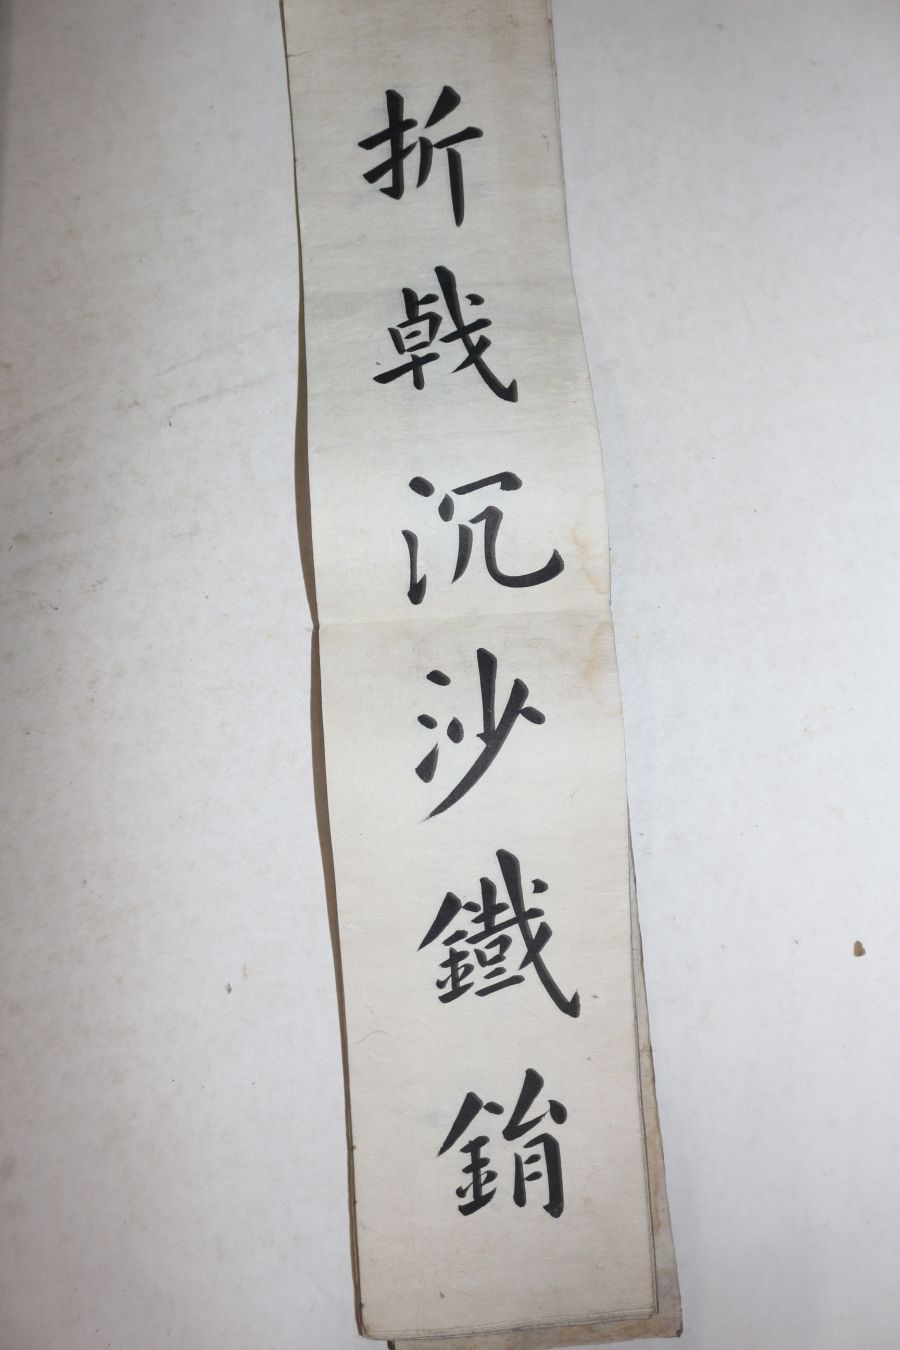 折戟沉沙鐵銷